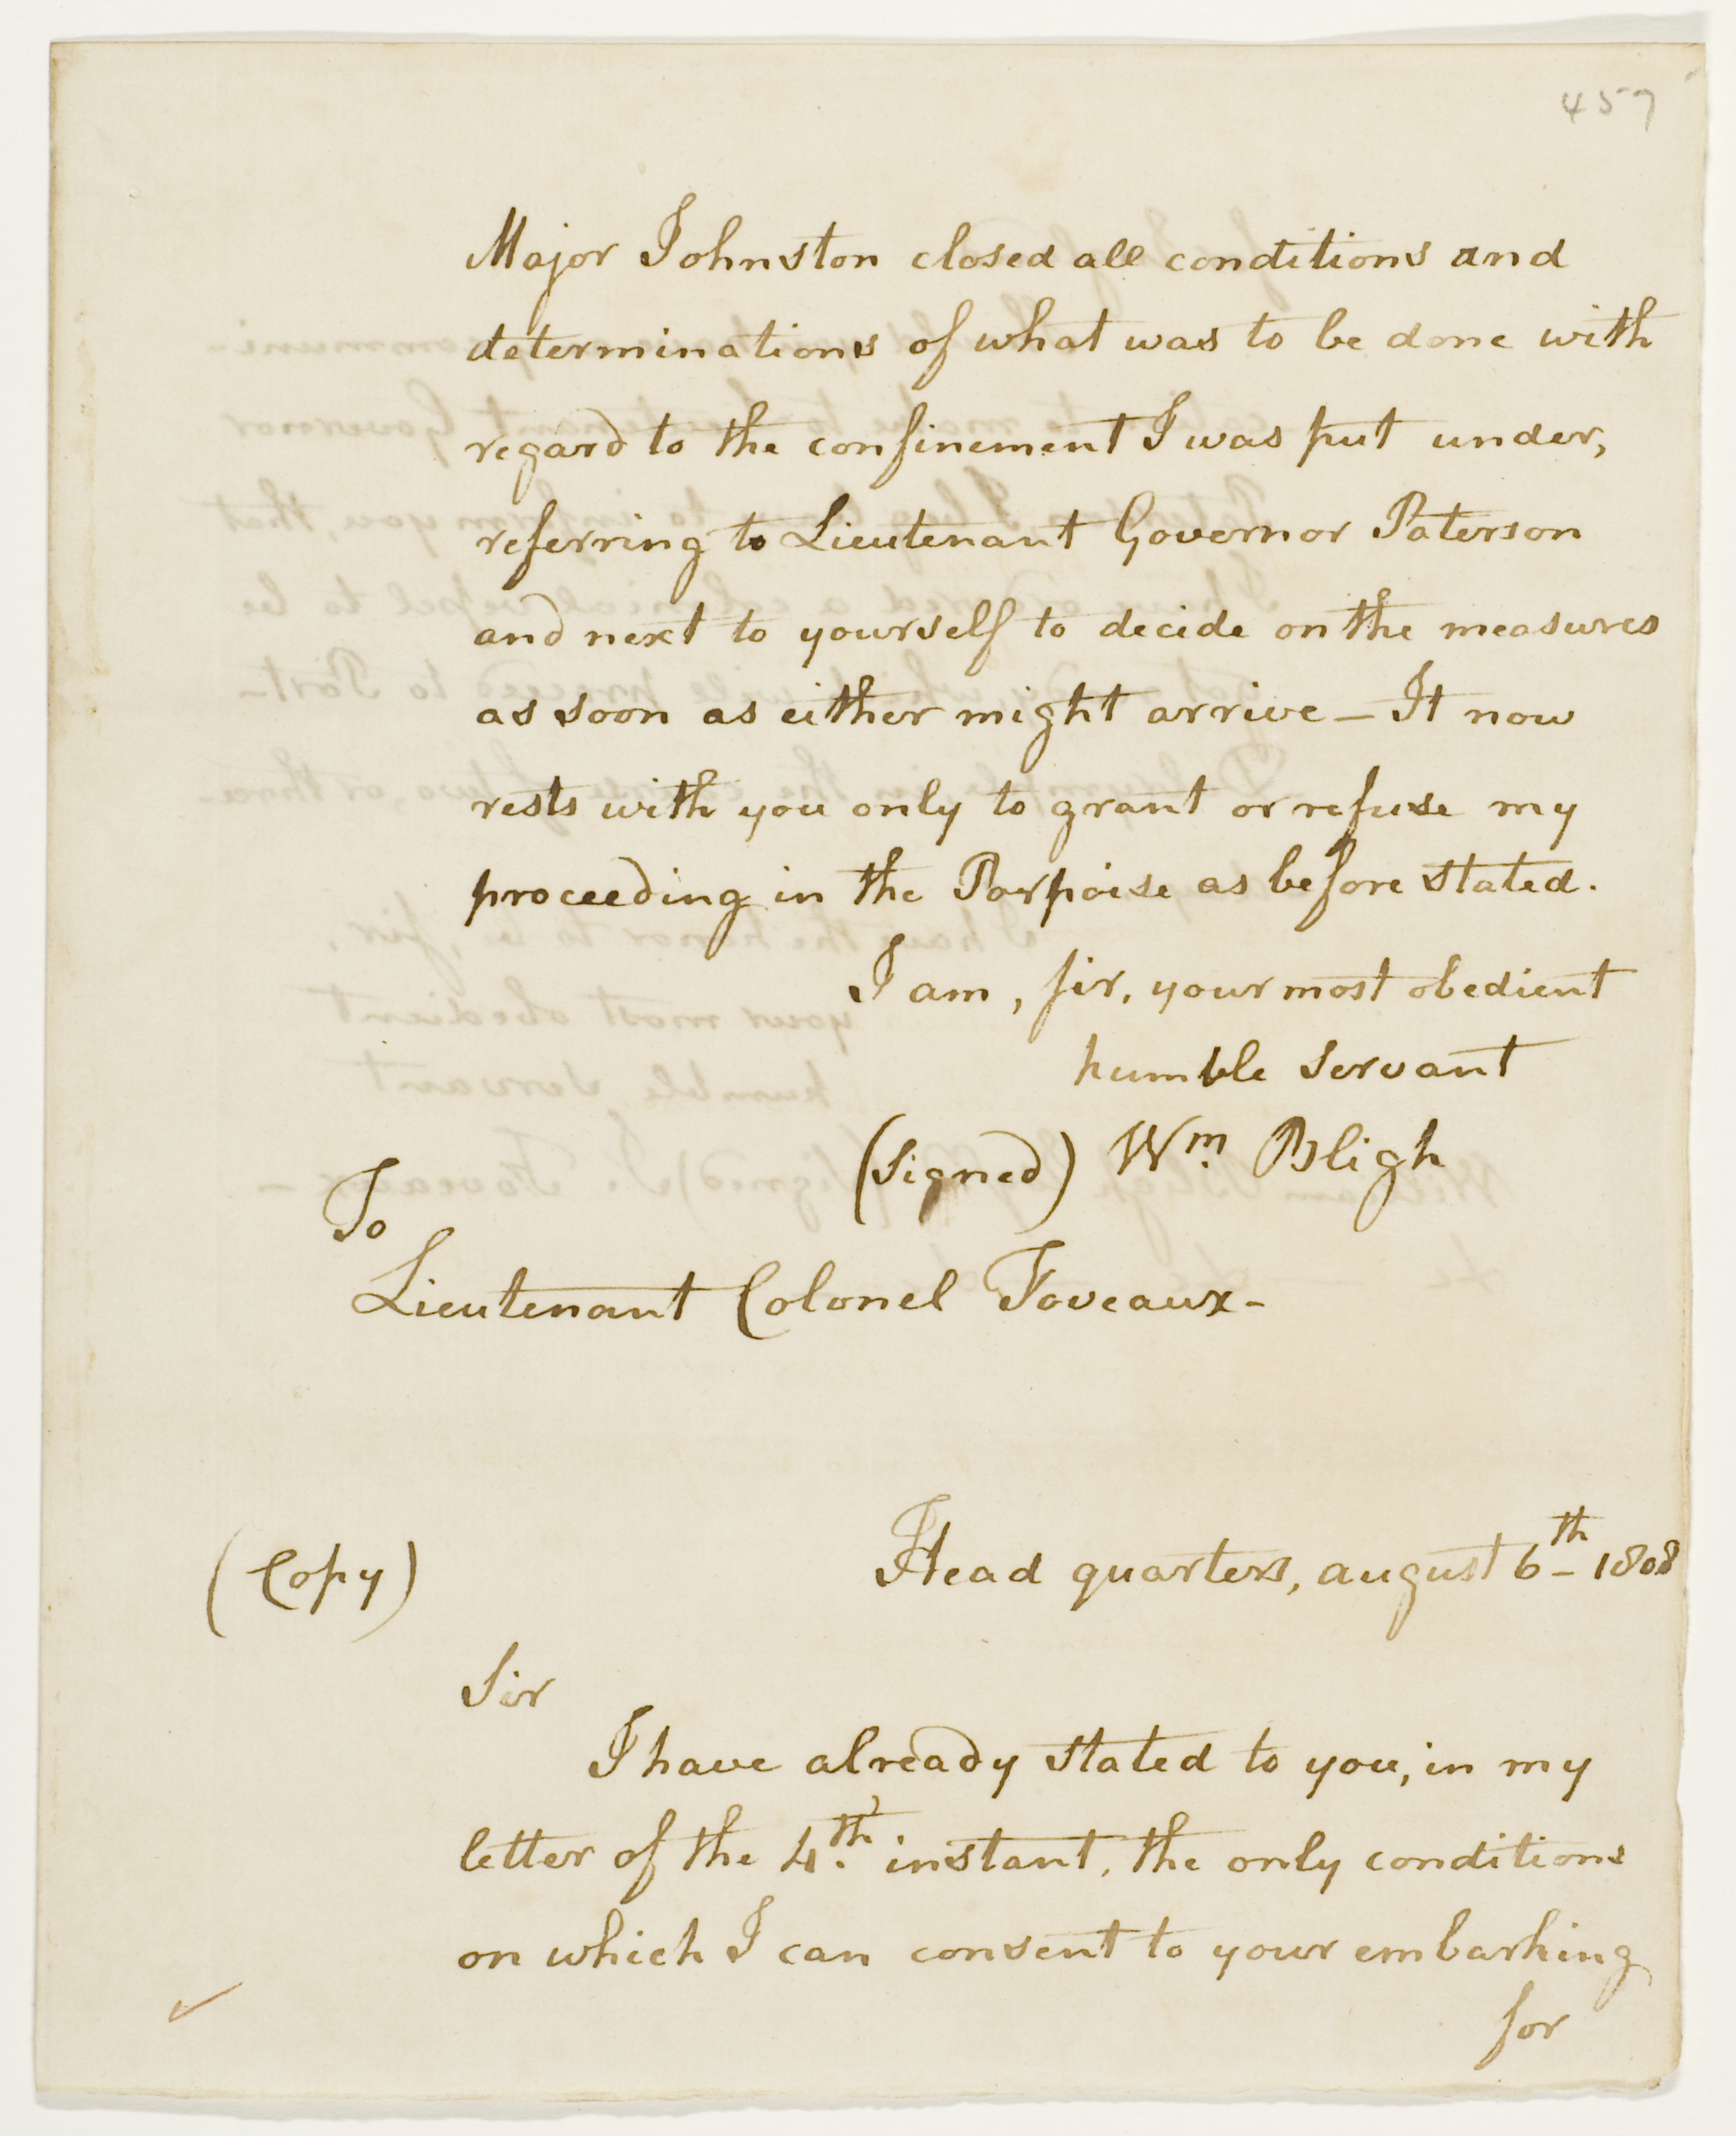 457
Major Johnston closed all conditions and
determinations of what was to be done with
regard to the confinement I was put under,
referring to Lieutenant Governor Paterson
and next to yourself to decide on the measures
as soon as either might arrive — It now
rests with you only to grant or refuse my
proceeding in the Porpoise as before stated.
I am, sir, your most obedient
humble servant
(signed) Wm. Bligh
To
Lieutenant Colonel Foveaux-
(Copy)
Head quarters, august 6th 1808
Sir
I have already stated to you, in my
letter of the 4th. instant, the only conditions
on which I can consent to your embarking
for